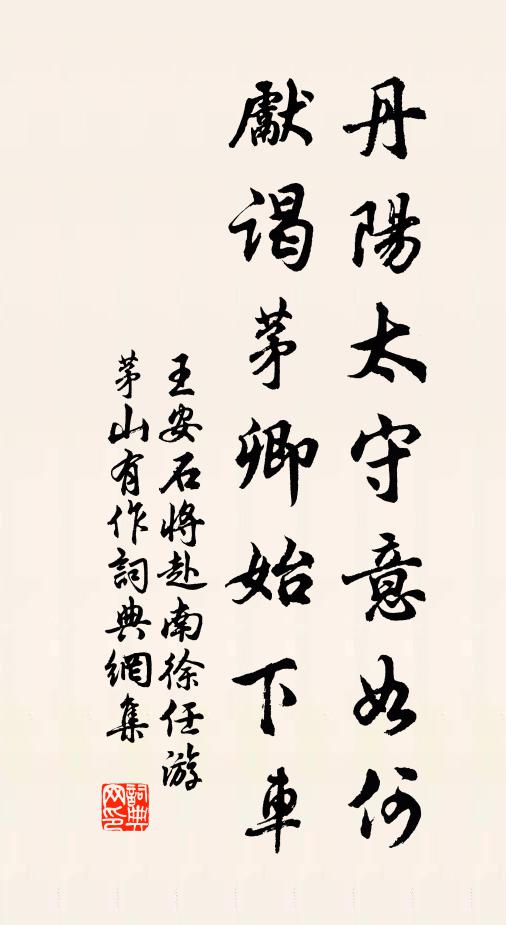 丹陽太守意如何
獻謁茅卿始下車
王安石將赴南徐任游
茅山有作詞典網集
詞典网印